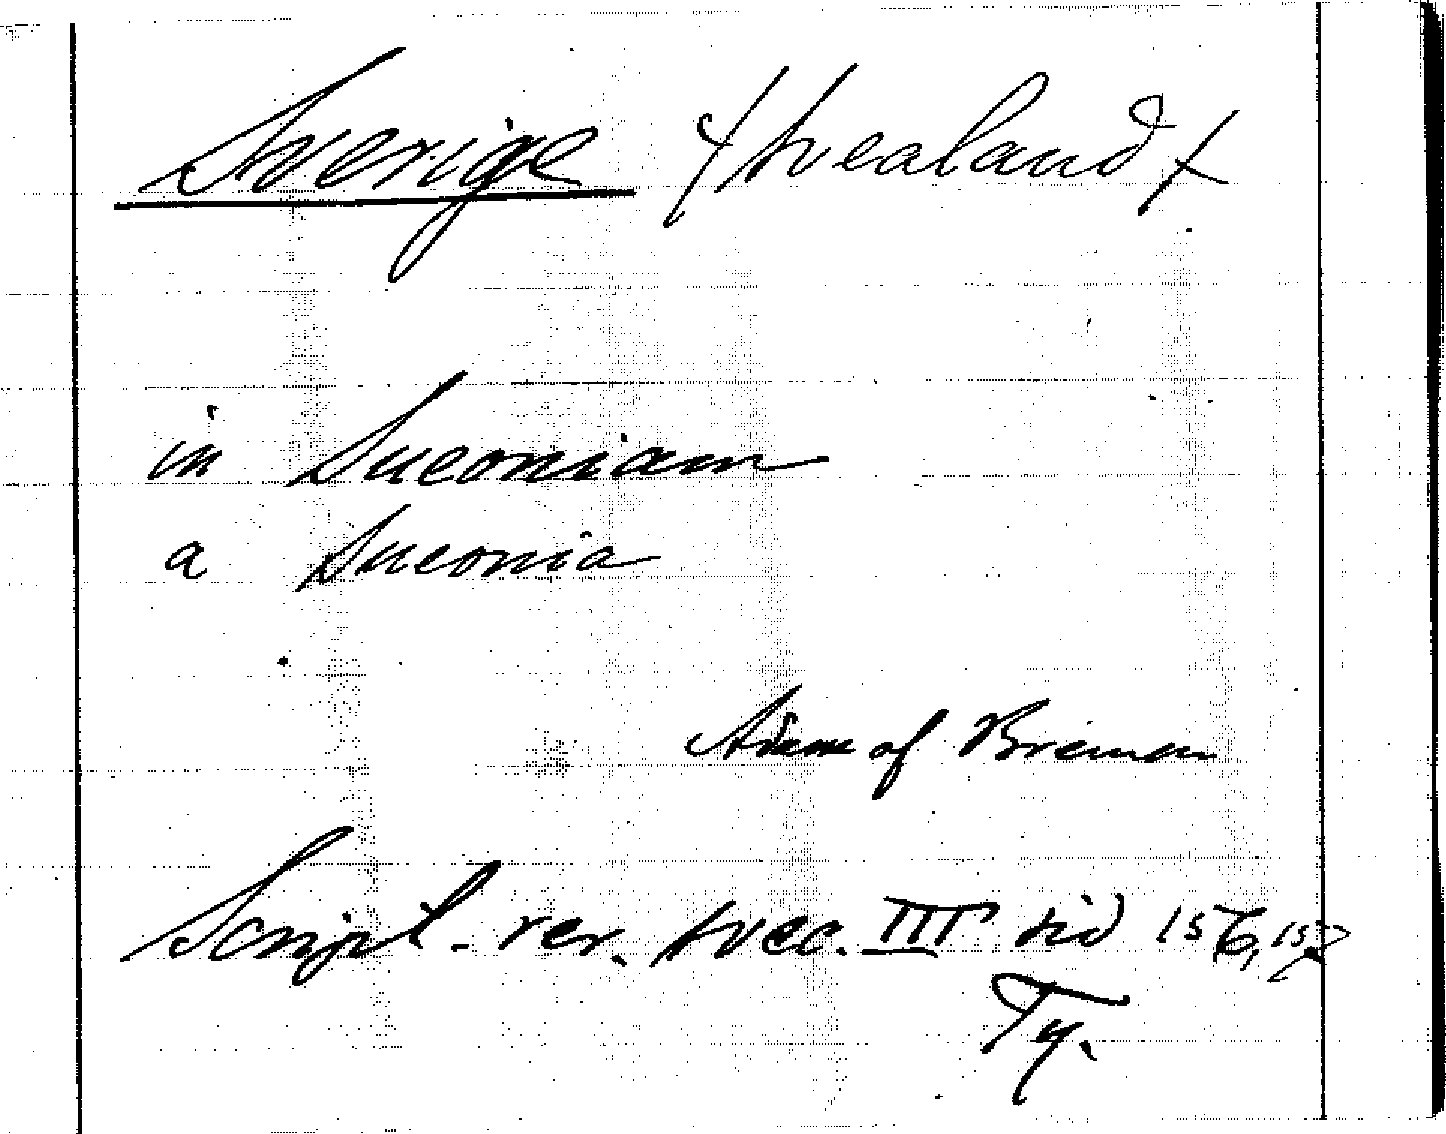 Sverige (Svealand)
in Sueoniam
a Sueonia
Adam of Bremen
Script. rer. svec. III sid 156, 157
Ty.